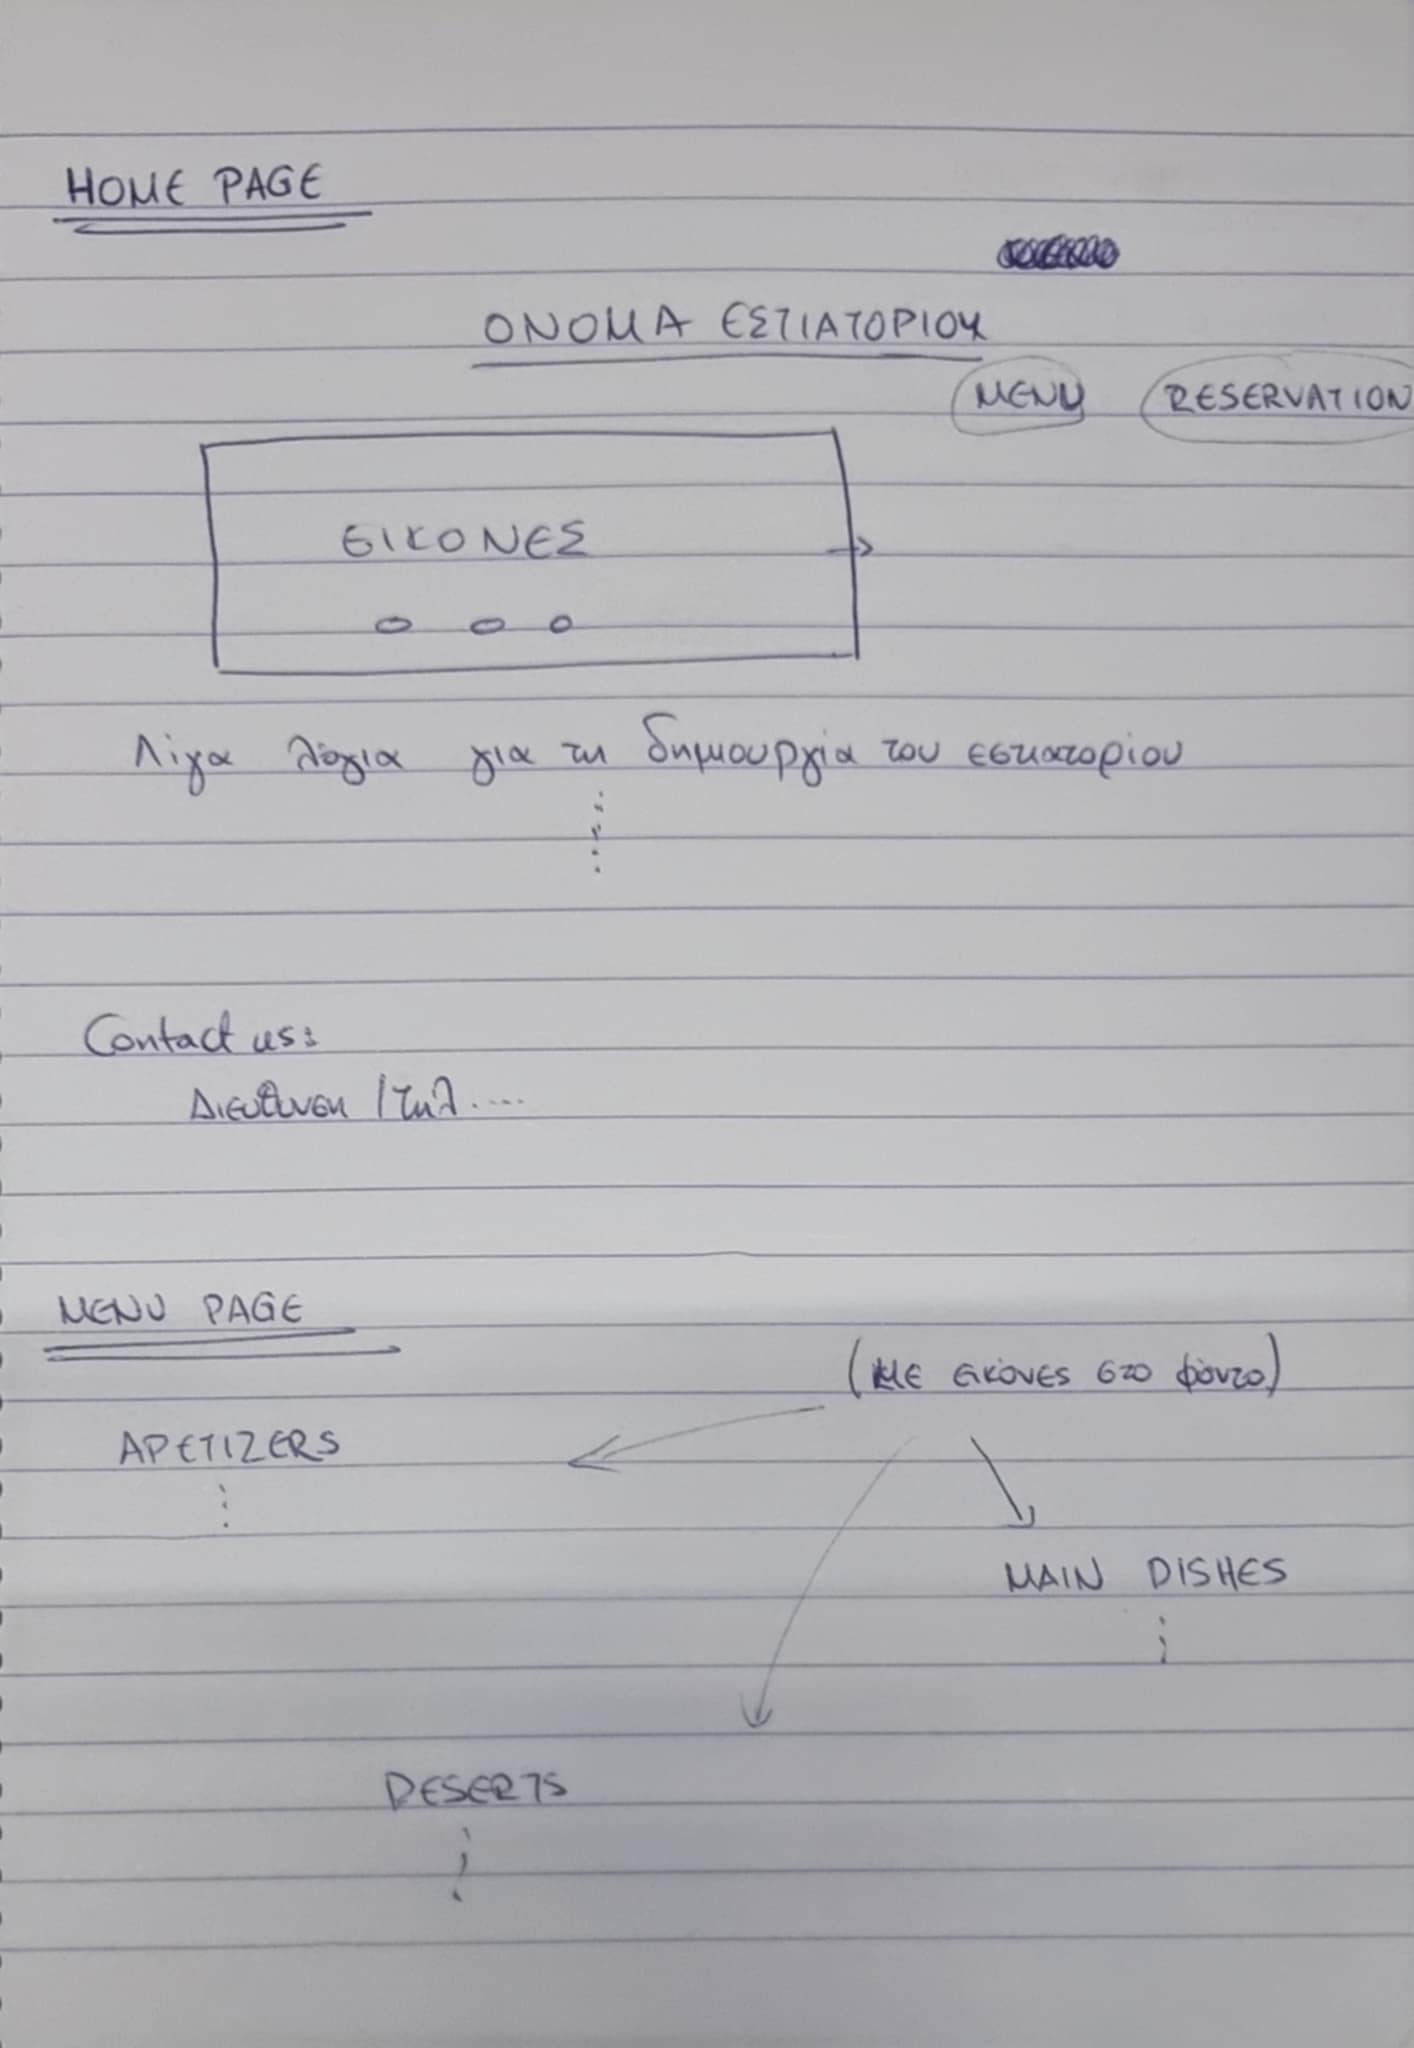 HOME PAGE
ΟΝΟΜΑ ΕΣΤΙΑΤΟΡΙΟΥ
MENU RESERVATION
ΕΙΚΟΝΕΣ
Λίγα λόγια για τη δημιουργία του εστιατορίου
Contact us:
Διεύθυνση / τηλ....
MENU PAGE
(ΜΕ εικόνες στο φόντο)
APETIZERS
MAIN DISHES
DESERTS